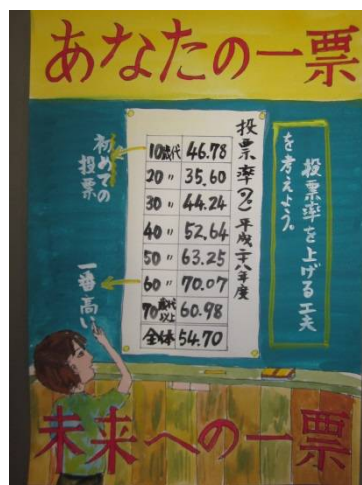 あなたの一票
投票率を上げる工夫
を考えよう。
投票率(%)平成二十八年度
10歳代 46.78
20 〃 35.60
30 〃 44.24
40 〃 52.64
50 〃 63.25
60 〃 70.07
70歳代以上 60.98
全体 54.70
初めての
投票
一番高い
未来への一票